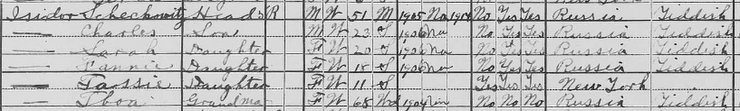 Isidor Scherkowitz Head R M W 51 M 1905 Na 1914 No Yes Yes Russia Yiddish
— Charles Son M W 23 S 1906 Na No Yes Yes Russia Yiddish
— Sarah Daughter F W 20 S 1906 Na No Yes Yes Russia Yiddish
— Fannie Daughter F W 18 S 1906 Na No Yes Yes Russia Yiddish
— Daughter F W 11 S Yes Yes Yes New York
— Grandma F W 68 Wd No No No Russia Yiddish